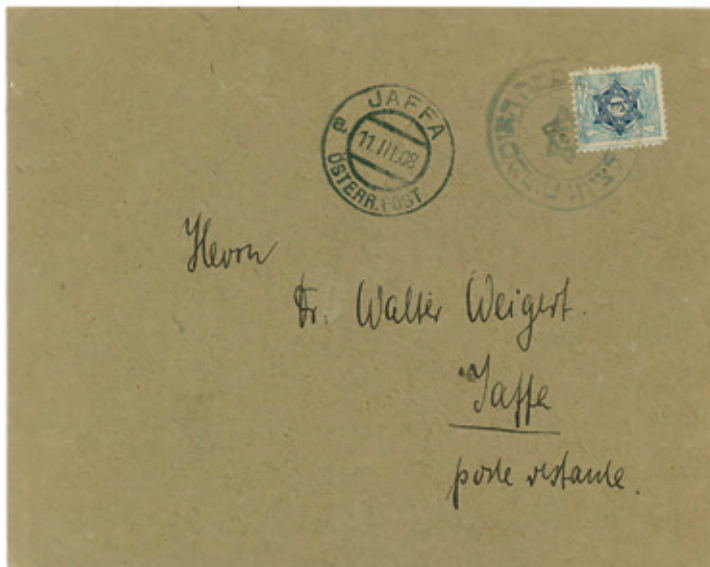 JAFFA
a
11.III.08
ÖSTERR. POST
Herrn
Dr. Walter Weigert.
Jaffa
poste restante.